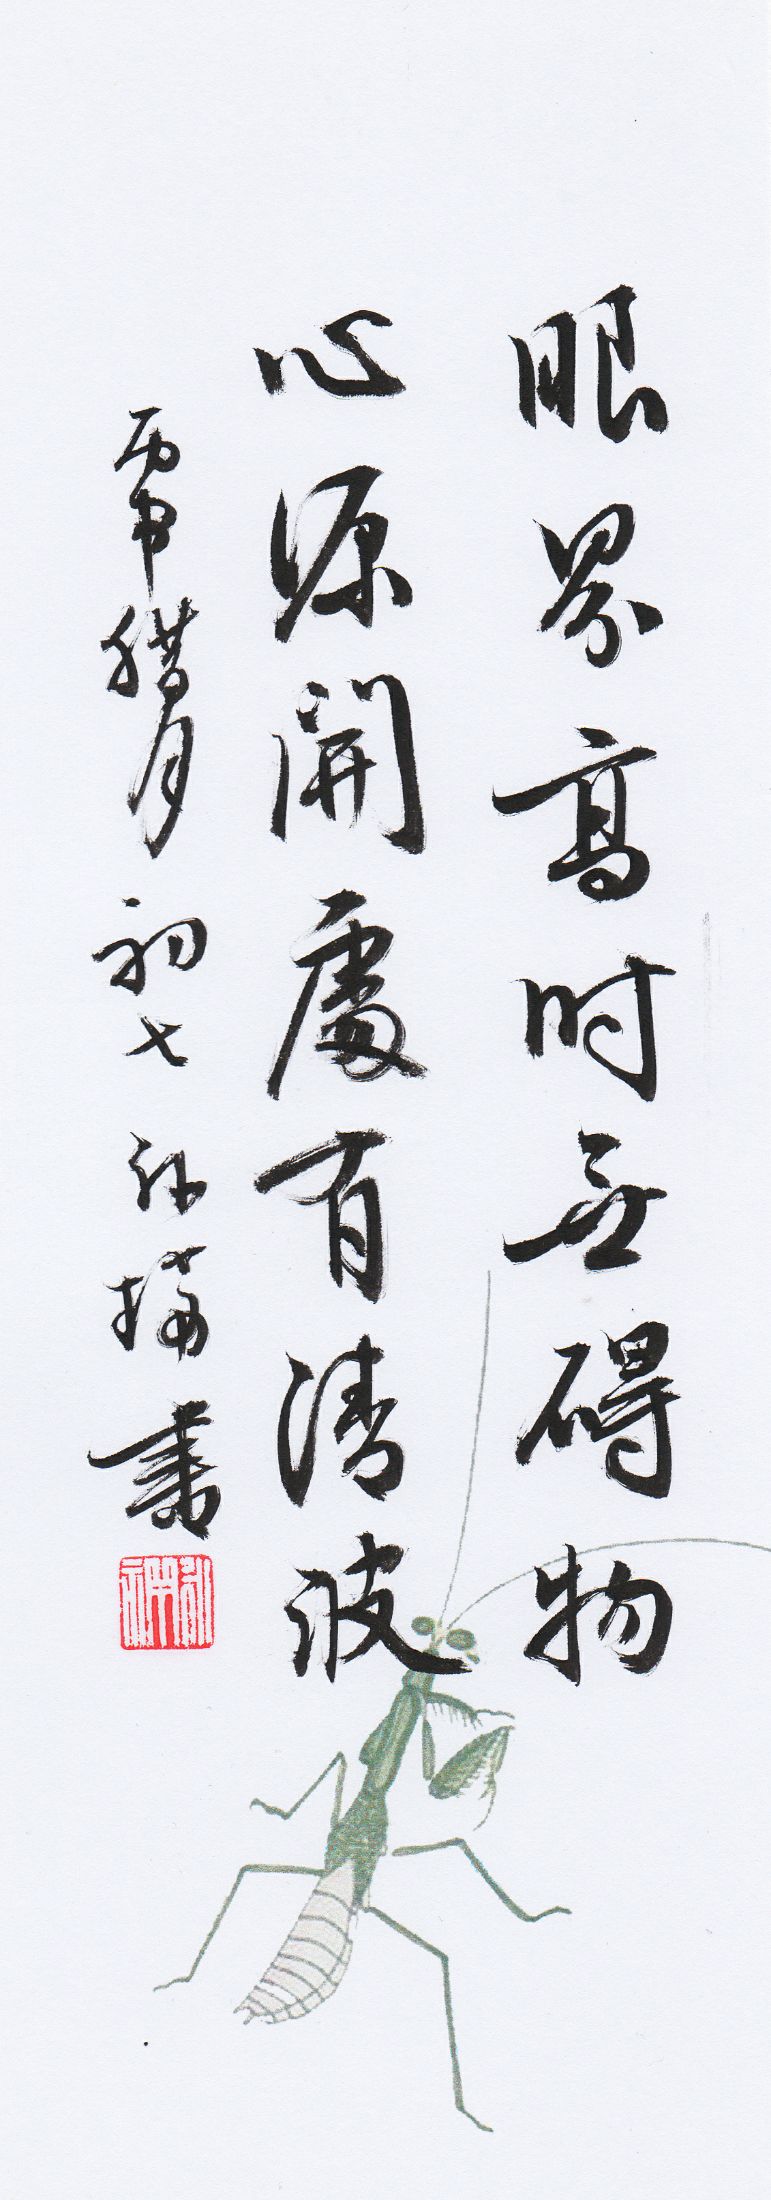 眼界高时无碍物
心源開處有清波
丙申腊月初七 书